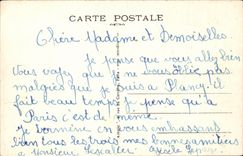 CARTE POSTALE
Chère Madame et Demoiselles.
Je pense que vous allez bien
Vous voyez que je ne vous oublie pas
malgrès que je suis a Plancy. il
fait beau temps je pense qu'a
Paris c'est de même.
Je termine en vous embrassant
bien tous les trois mes bonnes amitiées
a Monsieur